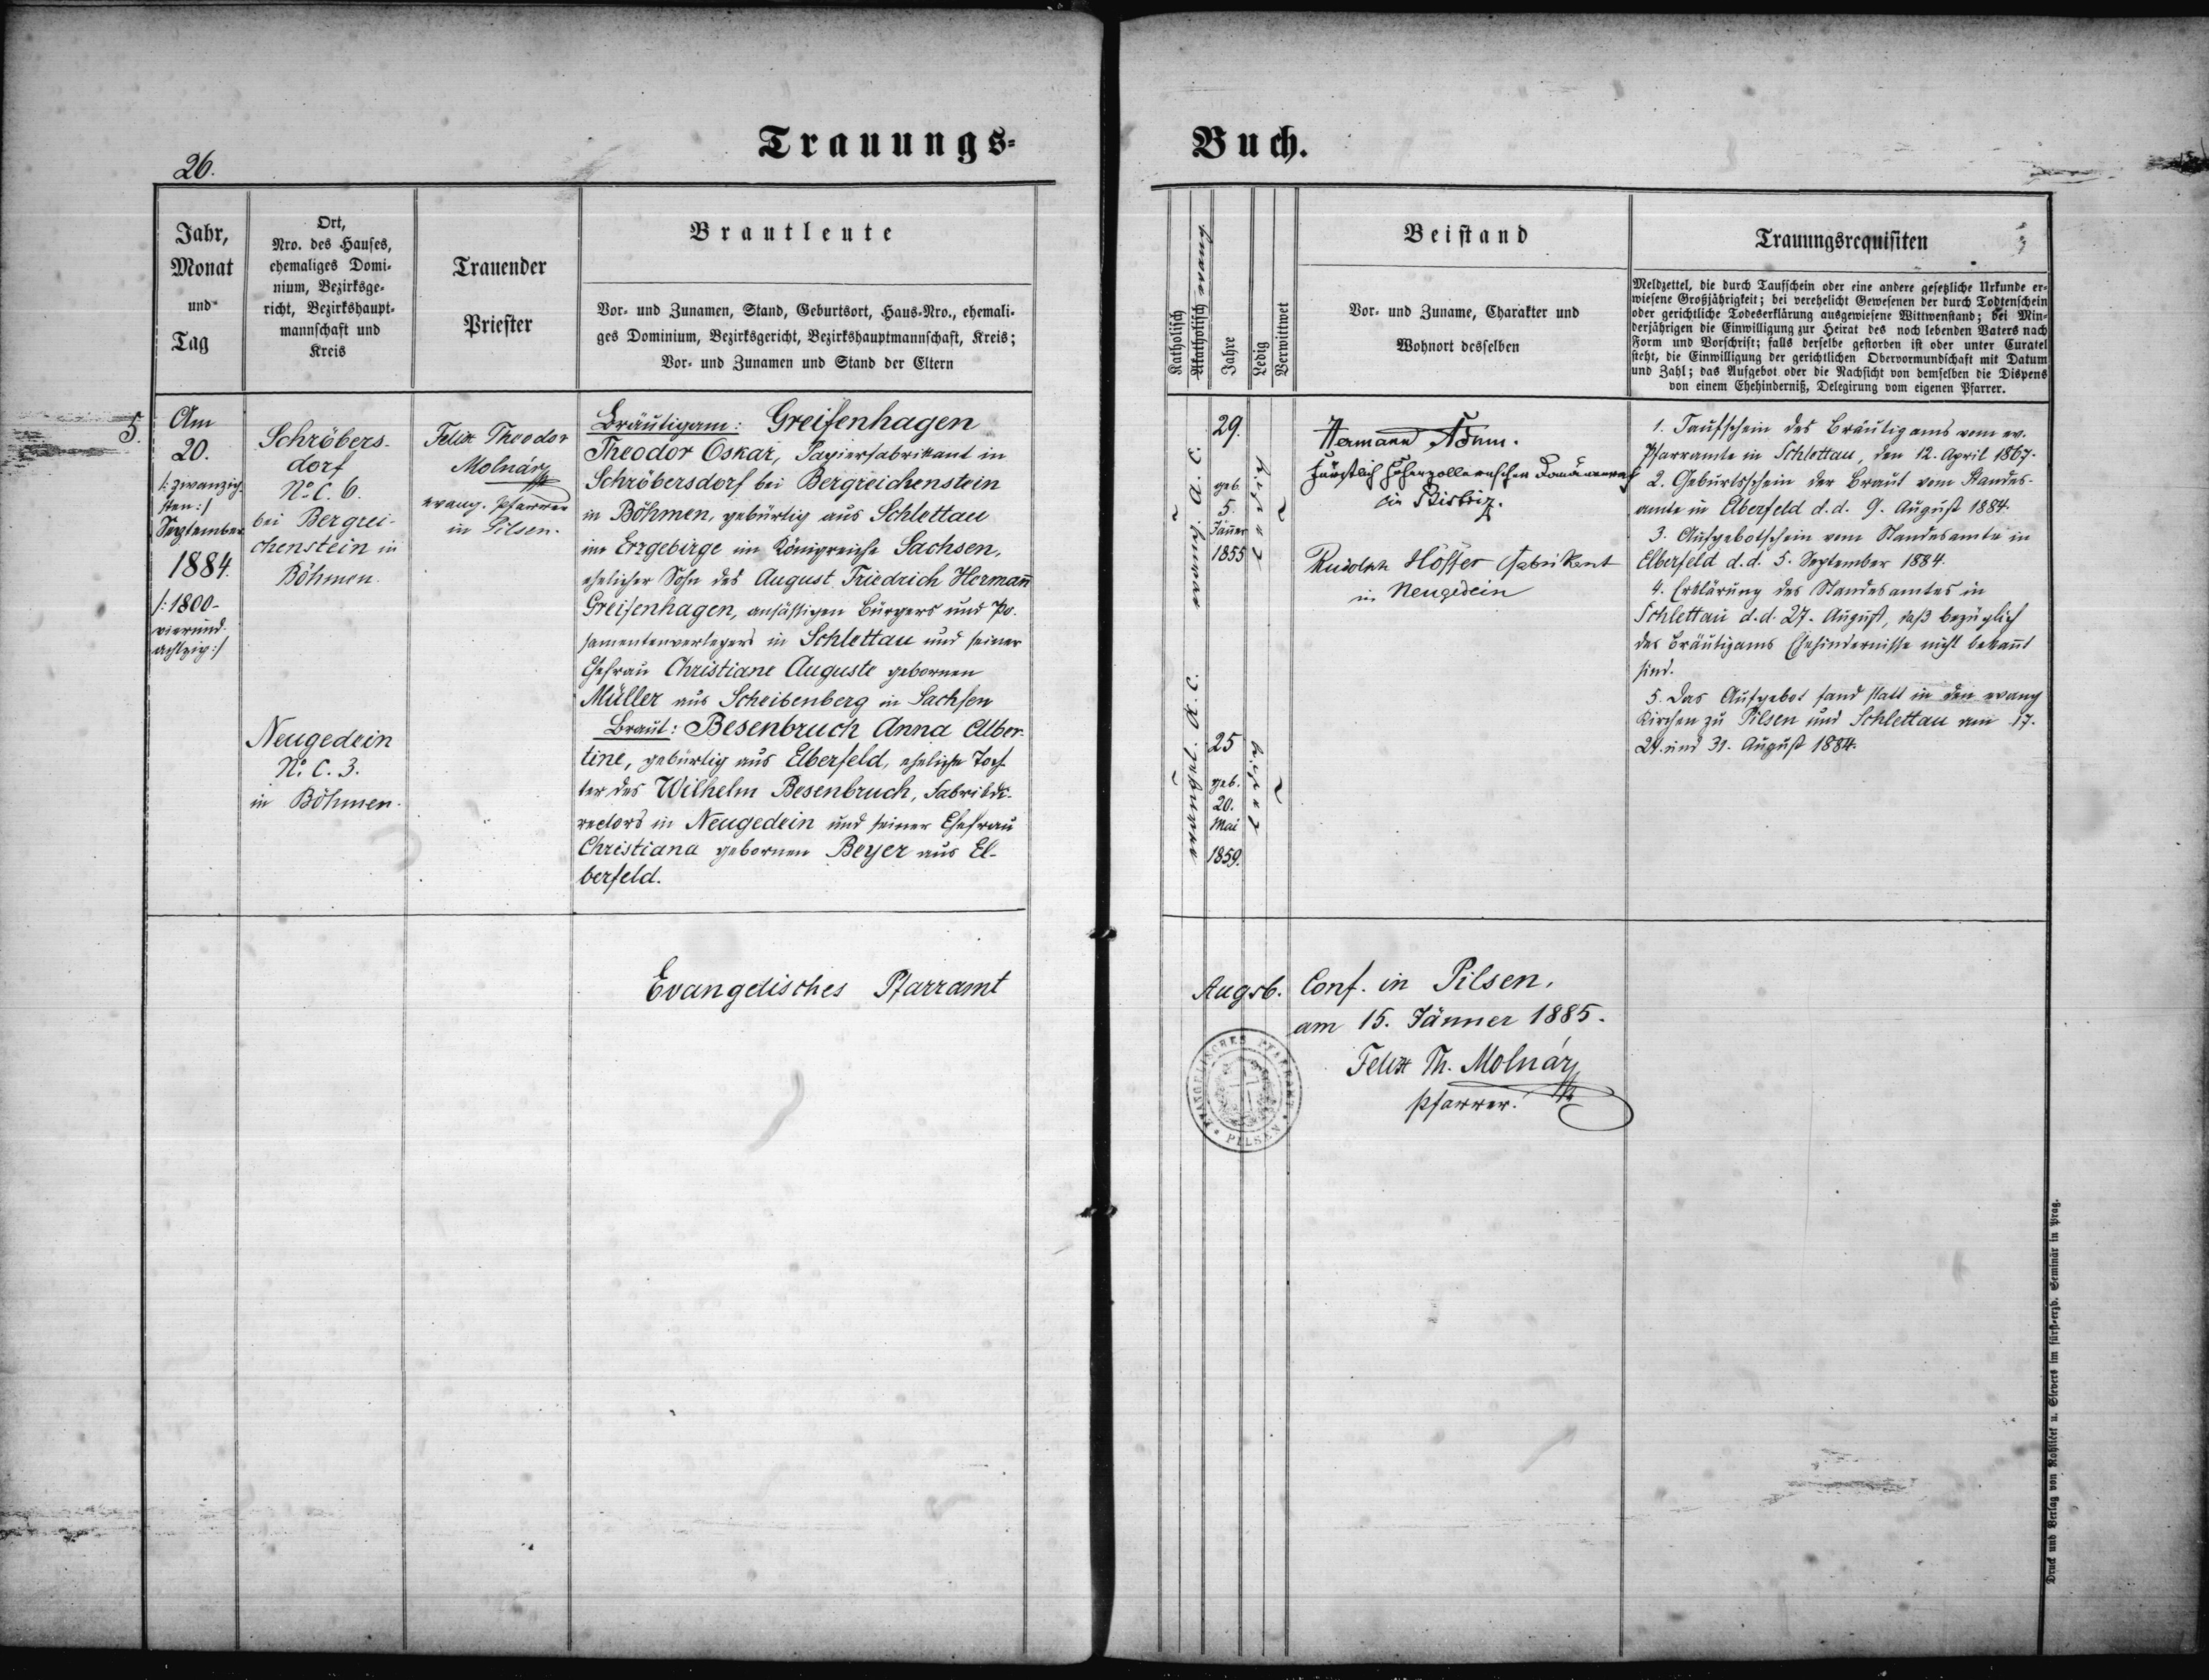 Trauungs-
Buch.
26.
Jahr,
Monat
und
Tag
Ort,
Nro. des Hauses,
ehemaliges Domi-
nium, Bezirksge-
richt, Bezirkshaupt-
mannschaft und
Kreis
Trauender
Priester
Brautleute
Vor- und Zunamen, Stand, Geburtsort, Haus-Nro., ehemali-
ges Dominium, Bezirksgericht, Bezirkshauptmannschaft, Kreis;
Vor- und Zunamen und Stand der Eltern
Katholisch
Akatholisch evang.
Jahre
Ledig
Verwittwet
Beistand
Vor- und Zuname, Charakter und
Wohnort desselben
Trauungsrequisiten
Meldzettel, die durch Taufschein oder eine andere gesetzliche Urkunde er-
wiesene Großjährigkeit; bei verehelicht Gewesenen der durch Todtenschein
oder gerichtliche Todeserklärung ausgewiesene Wittwenstand; bei Min-
derjährigen die Einwilligung zur Heirat des noch lebenden Vaters nach
Form und Vorschrift; falls derselbe gestorben ist oder unter Curatel
steht, die Einwilligung der gerichtlichen Obervormundschaft mit Datum
und Zahl; das Aufgebot oder die Nachsicht von demselben die Dispens
von einem Ehehinderniß, Delegirung vom eigenen Pfarrer.
5.
Am
20.
/:zwanzig-
sten:/
September
1884.
/:1800-
vierund-
achtzig:/
Schröbers-
dorf
No. C. 6.
bei Bergrei-
chenstein in
Böhmen.
Neugedein
No. C. 3.
in Böhmen.
Felix Theodor
Molnár
evang. Pfarrer
in Pilsen.
Bräutigam: Greifenhagen
Theodor Oskar, Papierfabrikant in
Schröbersdorf bei Bergreichenstein
in Böhmen, gebürtig aus Schlettau
im Erzgebirge im Königreiche Sachsen,
ehelicher Sohn des August Friedrich Hermann̄
Greifenhagen, ansäßigen Bürgers und Po-
samentenverlegers in Schlettau und seiner
Ehefrau Christiane Auguste gebornen
Müller aus Scheibenberg in Sachsen
Braut: Besenbruch Anna Alber-
tine, gebürtig aus Elberfeld, eheliche Toch-
ter des Wilhelm Besenbruch, Fabriksdi-
rectors in Neugedein und seiner Ehefrau
Christiana gebornen Beyer aus El-
berfeld.
evang. A. C.
29.
geb.
5.
Jänner
1855
ledig
evangel. A. C.
25
geb.
20.
Mai
1859.
ledig
Hermann
Fürstlich Hohenzollernscher
in Bistriz.
Rudolph Höffer Fabrikant
in Neugedein
1. Taufschein des Bräutigams vom ev.
Pfarramte in Schlettau, den 12. April 1867.
2. Geburtsschein der Braut vom Standes-
amte in Elberfeld d.d. 9. August 1884.
3. Aufgebotschein vom Standesamte in
Elberfeld d.d. 5. September 1884.
4. Erklärung des Standesamtes in
Schlettau d.d. 27. August, daß bezüglich
des Bräutigams Ehehindernisse nicht bekannt
sind.
5. Das Aufgebot fand statt in den evang
Kirchen zu Pilsen und Schlettau am 17.
24. und 31. August 1884.
Evangelisches Pfarramt
Augsb. Conf. in Pilsen,
am 15. Jänner 1885.
Felix Th. Molnár
Pfarrer.
EVANGELISCHES PFARRAMT
PILSEN
Druck und Verlag von Rohliček u. Sievers im fürst-erzb. Seminär in Prag.